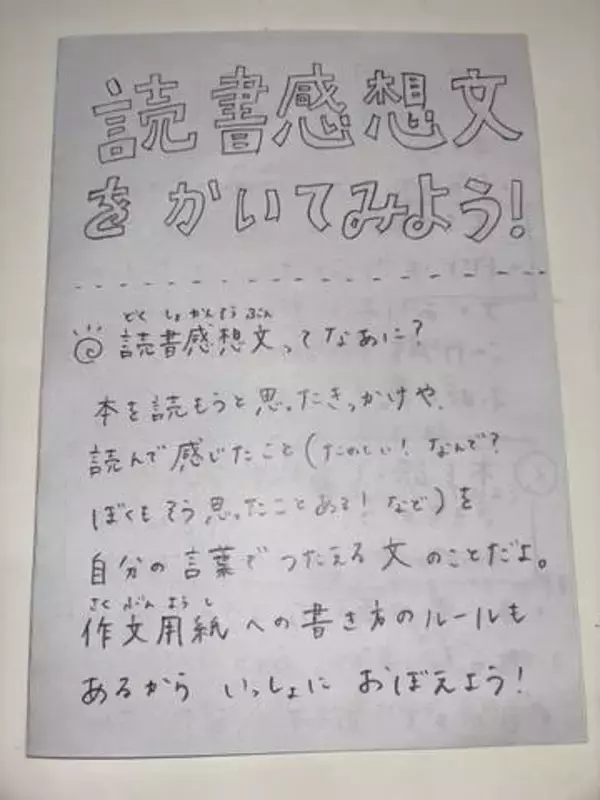 読書感想文
をかいてみよう!
どくしょかんそうぶん
読書感想文ってなあに?
本を読もうと思ったきっかけや、
読んで感じたこと(たのしい! なんで?
ぼくもそう思ったことある! など)を
自分の言葉でつたえる文のことだよ。
さくぶんようし
作文用紙への書き方のルールも
あるから いっしょに おぼえよう!